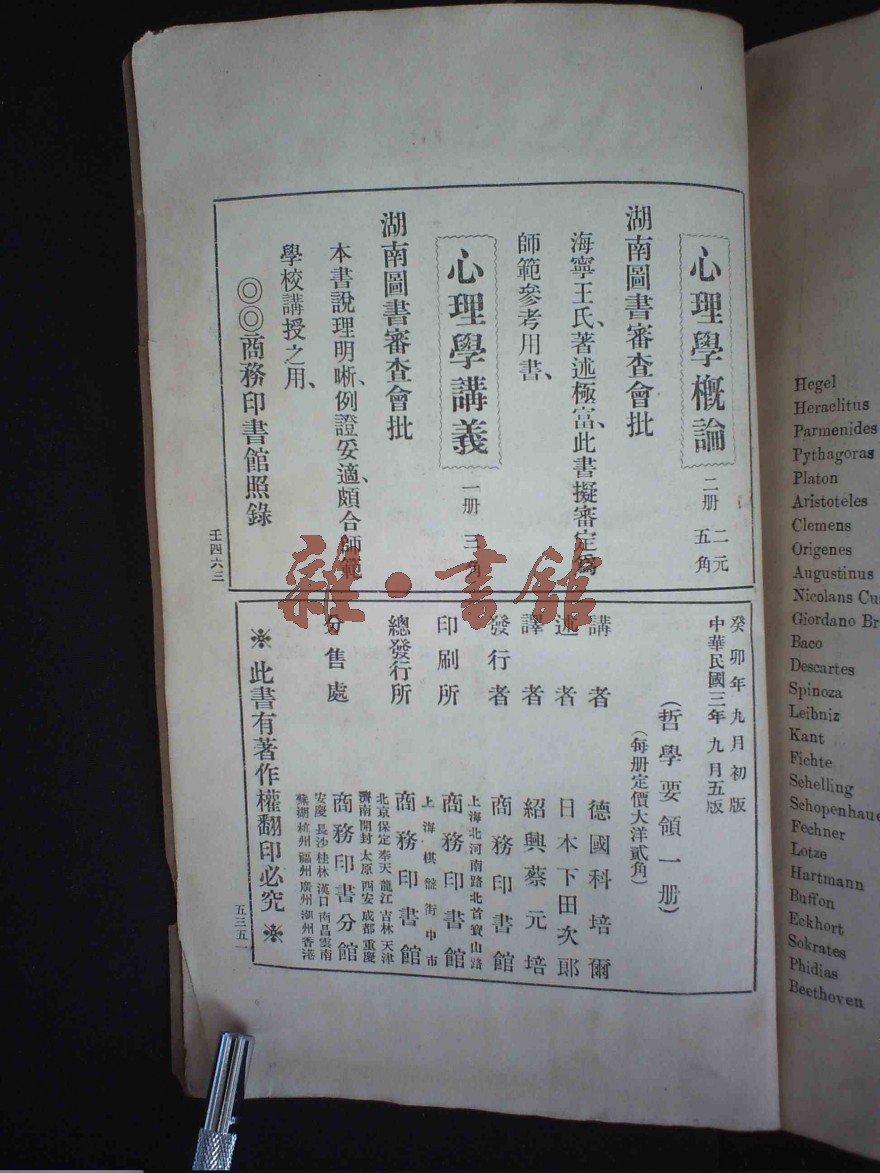 心理學概論
二册 二元五角
湖南圖書審查會批
海寧王氏、著述極富、此書擬審定爲
師範參考用書、
心理學講義
一册 三角
湖南圖書審查會批
本書說理明晰、例證妥適、頗合師範
學校講授之用、
◎◎商務印書館照錄
壬四六三
癸卯年九月初版
中華民國三年九月五版
(哲學要領一册)
(每册定價大洋貳角)
講者 德國科培爾
述者 日本下田次郞
譯者 紹興蔡元培
發行者 商務印書館
印刷所 上海北河南路北首寶山路 商務印書館
總發行所 上海棋盤街中市 商務印書館
分售處 北京保定奉天龍江吉林天津
濟南開封太原西安成都重慶
商務印書分館
安慶長沙桂林漢口南昌雲南
蕪湖杭州福州廣州潮州香港
※此書有著作權翻印必究※
五三五一
雜·書館
Hegel
Heraclitus
Parmenides
Pythagoras
Platon
Aristoteles
Clemens
Origenes
Augustinus
Nicolans Cu
Giordano Br
Baco
Descartes
Spinoza
Leibniz
Kant
Fichte
Schelling
Schopenhaue
Fechner
Lotze
Hartmann
Buffon
Eckhort
Sokrates
Phidias
Beethoven